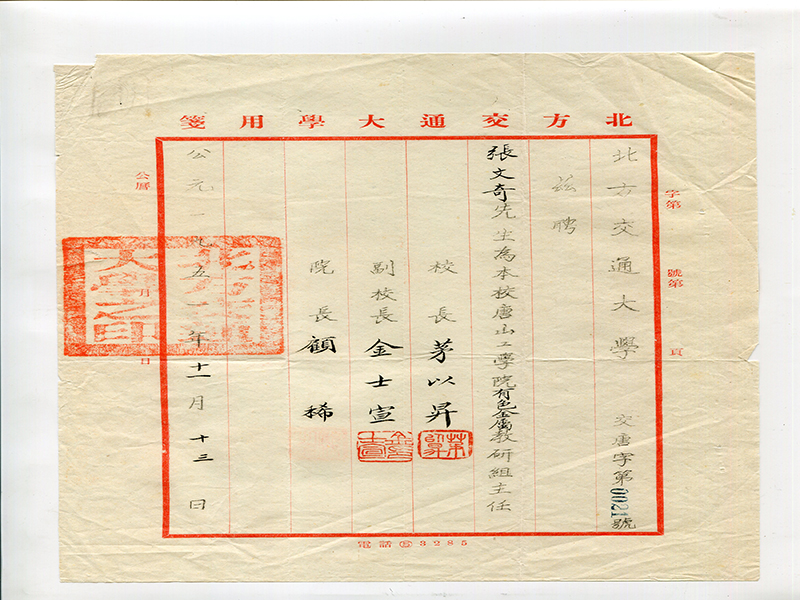 北方交通大學用箋
字第　號第　頁
北方交通大學　交唐字第0021號
茲聘
張文奇先生為本校唐山工學院有色金屬教研組主任
校長茅以昇
副校長金士宣
院長顧稀
公元一九五一年十一月十三日
公曆　月　日
北方交通大學之印
電話⑤3285